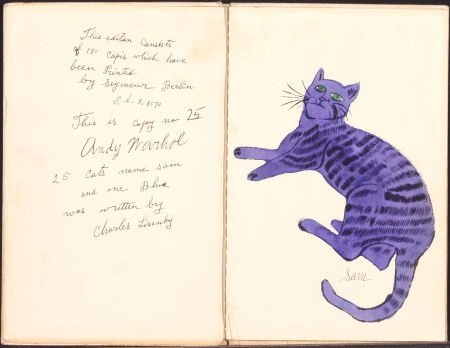 This edition consists
of 190 copis which have
been Printed
by Seymour Berlin
This is copy no 25
Andy Warhol
25 Cats name sam
and one Blue
was written by
Charles Lisanby
Sam